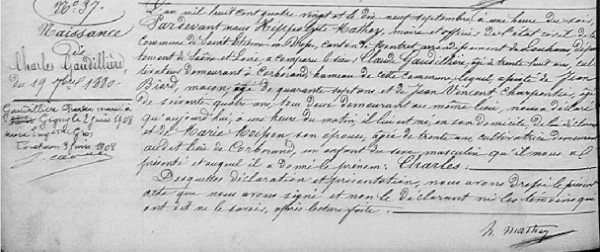 N° 37.
Naissance
de
Charles Gaudillière
du 19 7bre 1880.
Gaudillière Charles marié à
Gigny le 2 juin 1908
avec Eugénie
3 juin 1908
L'an mil huit cent quatre vingt et le dix neuf septembre à une heure du soir,
Pardevant nous Hippolyte Mathey, maire et officier de l'état civil de la
Commune de Saint Etienne en Bresse, canton de Montret arrondissement de Louhans, dépar-
tement de Saône et Loire, a comparu le sieur Claude Gaudillière, âgé de trente huit ans, cul-
tivateur demeurant à Corberand, hameau de cette commune, lequel assisté de Jean
maçon, âgé de quarante sept ans et de Jean Vincent Charpentier, âgé
de soixante quatre ans, tous deux demeurant au même lieu, nous a déclaré
qu'aujourd'hui, à une heure du matin, il lui est né, en son domicile, de lui déclarant
et de Marie son épouse, âgée de trente ans, cultivatrice demeurant
audit lieu de Corberand, un enfant du sexe masculin qu'il nous a
présenté et auquel il a donné le prénom: Charles.
Desquelles déclaration et présentation, nous avons dressé le présent
acte que nous avons signé et non le déclarant ni les témoins qui
ont dit ne le savoir, après lecture faite.
h. Mathey